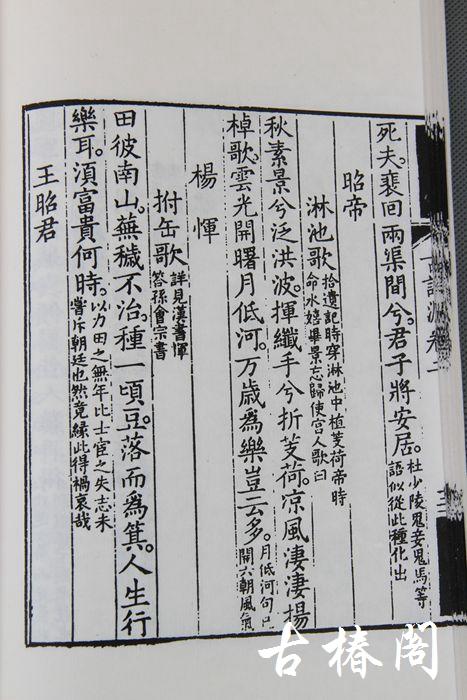 死夫。裴回兩渠間兮。君子將安居。杜少陵鬼妾鬼馬等
語似從此種化出
昭帝
淋池歌 拾遺記時穿淋池中植芰荷帝時
命水嬉畢景忘歸使宮人歌曰
秋素景兮泛洪波。揮纖手兮折芰荷。凉風淒淒揚
棹歌。雲光開曙月低河。万歲爲樂豈云多。月低河句已
開六朝風氣
楊惲
拊缶歌 詳見漢書惲
答孫會宗書
田彼南山。蕪穢不治。種一頃豆。落而爲箕。人生行
樂耳。須富貴何時。以力田之無年比士宦之失志未
嘗斥朝廷也然竟緣此得禍哀哉
王昭君
古椿閣